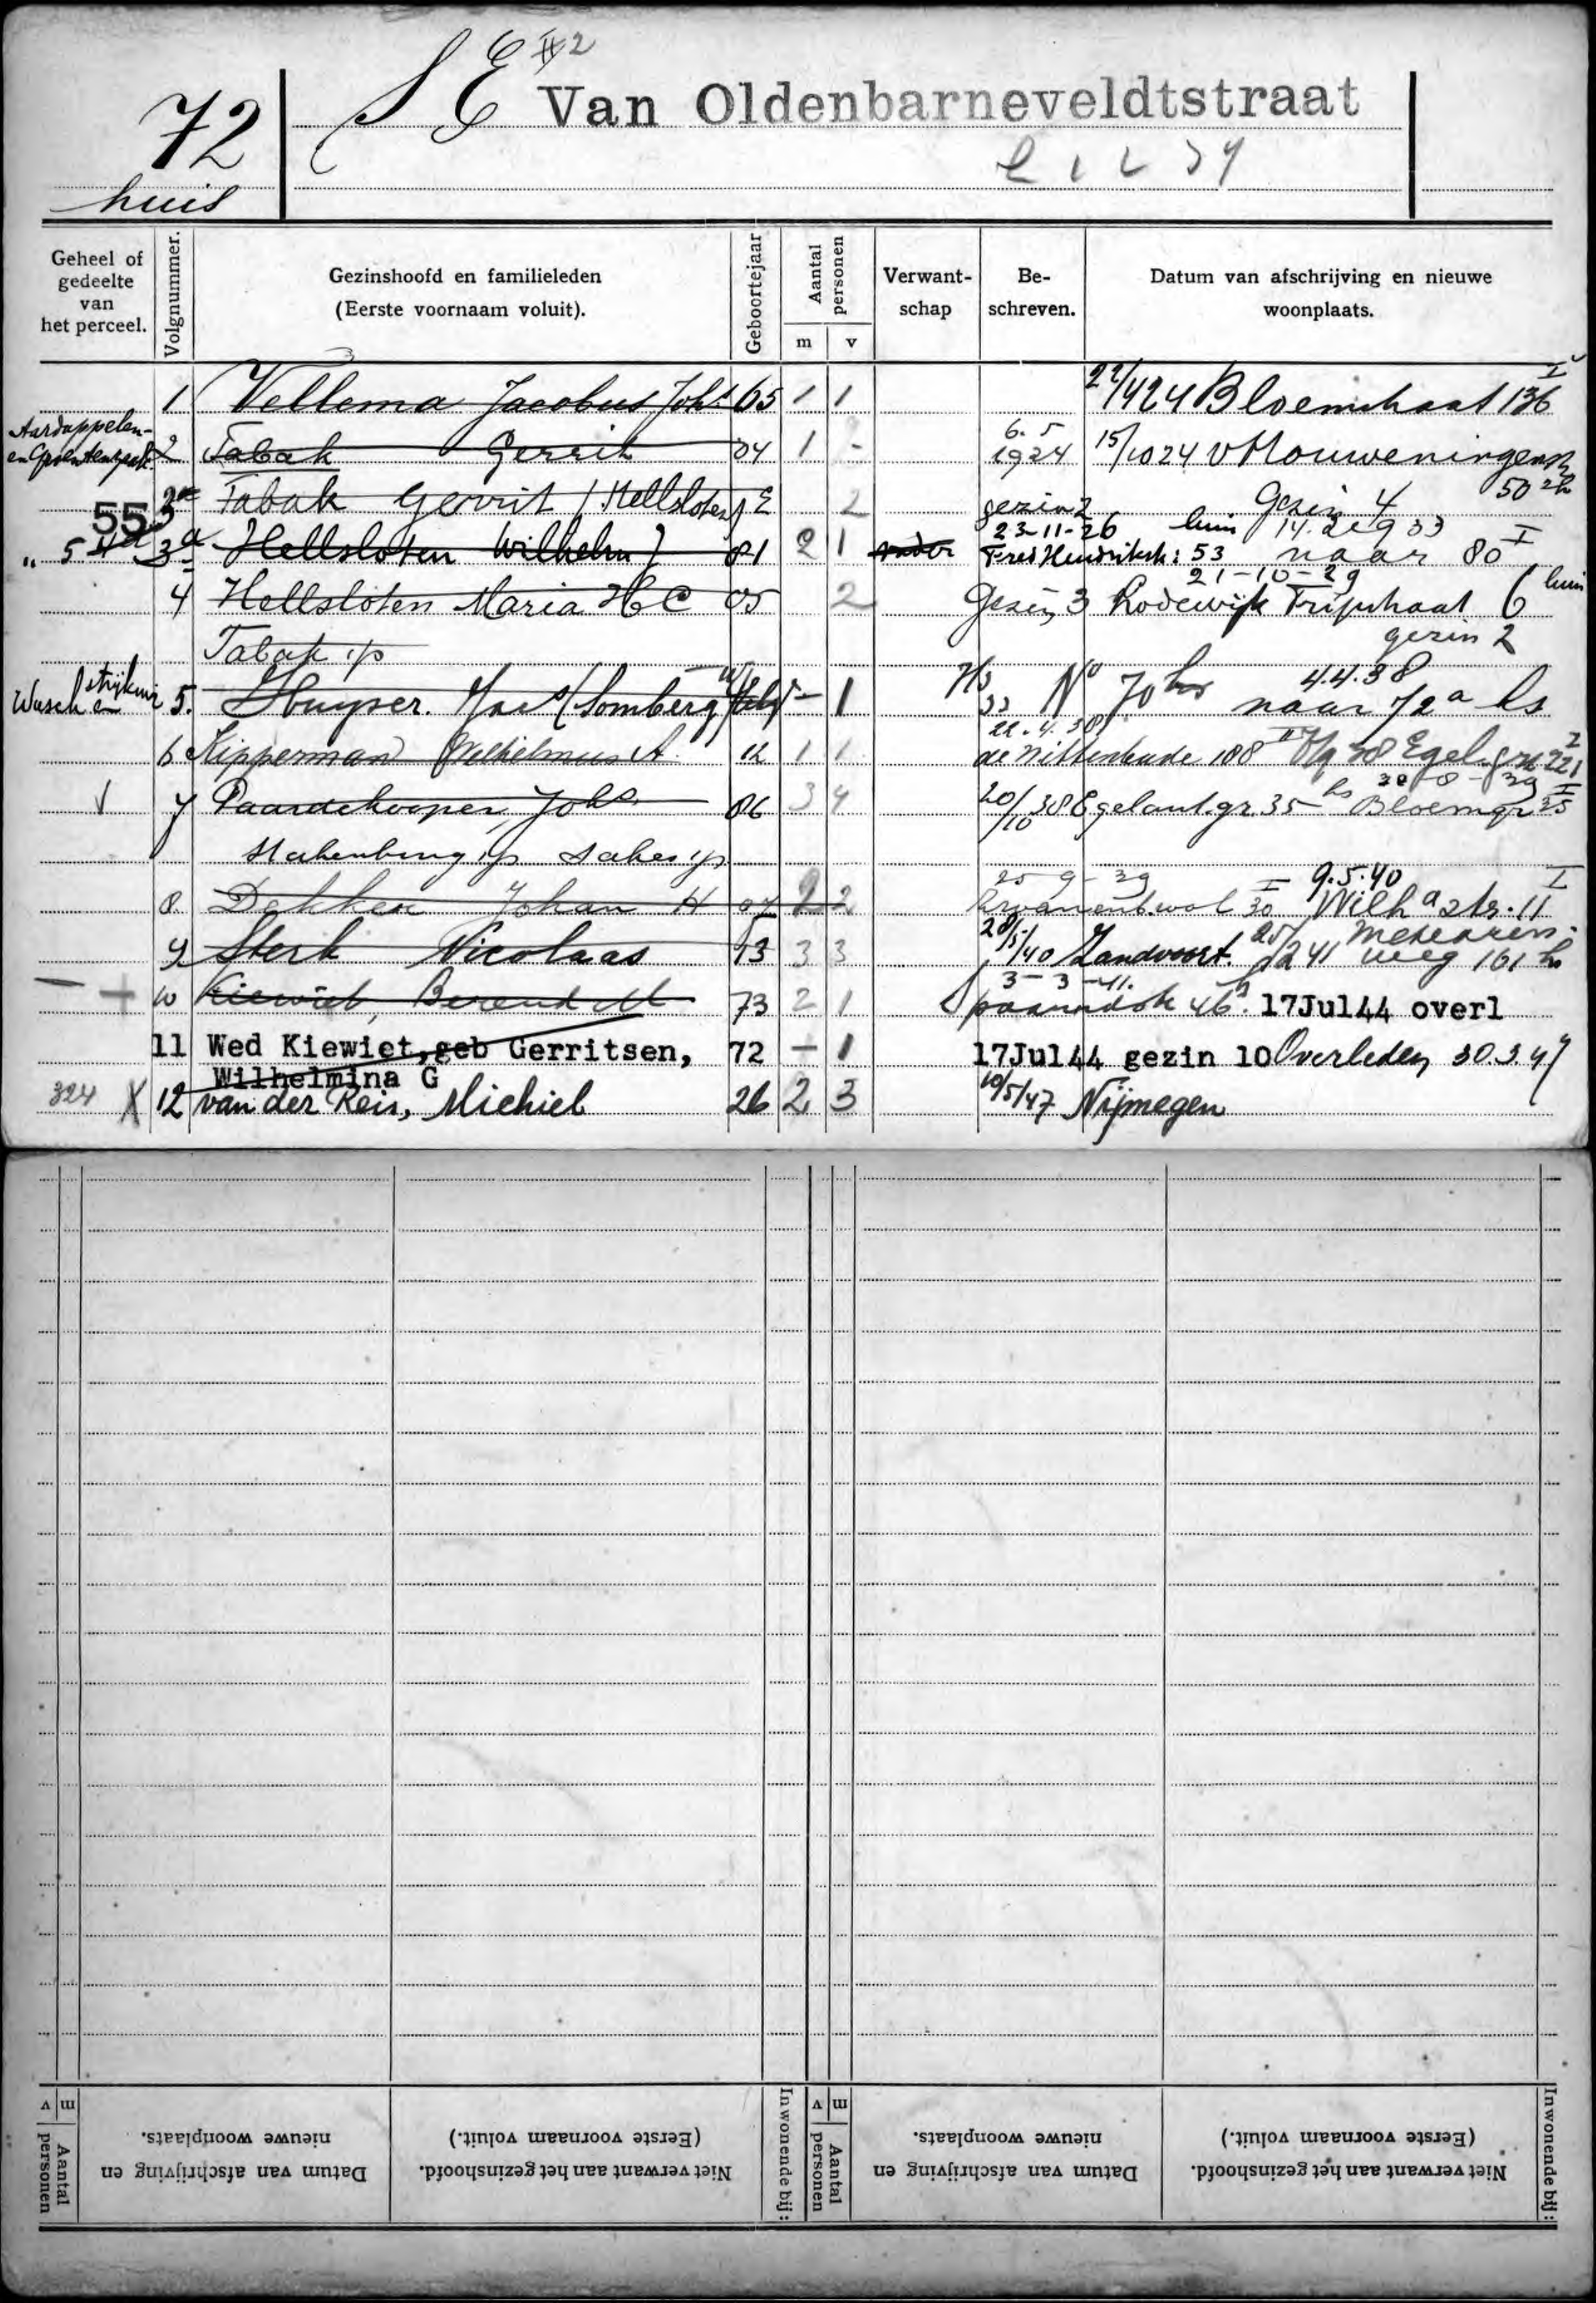 72 huis
S E II 2 Van Oldenbarneveldtstraat
Geheel of gedeelte van het perceel.
Volgnummer.
Gezinshoofd en familieleden (Eerste voornaam voluit).
Geboortejaar
Aantal personen
m v
Verwantschap
Beschreven.
Datum van afschrijving en nieuwe woonplaats.
1 Vellema Jacobus Johs 65 1 1 22/4 24 Bloemstraat 136 I
Aardappelen- en Groentenzaak 2 Tabak Gerrit 04 1 - 6.5 1924 15/10 24 v Houweningenstr 50 2h
Tabak Gerrit (Hellsloten) 2 gezin 2 Gezin 4
3a Hellsloten Wilhelm J 81 2 1 23-11-26 Fred Hendrikstr: 53 huis 14. 9 33 naar 80 I
4 Hellsloten Maria H C 05 2 Gezin 3 21-10-29 Lodewijk Tripstraat 6 huis
Tabak i/p gezin 2
Wasch en strijkinr 5. Huyser. (Somberg) - 1 No 70 hs 4.4.38 naar 72a hs
6 Kipperman Wilhelmus A. 12 1 1 22.4.38 de Wittenkade 188 II 38 Egel.gr 221 I
7 Paardekooper, Johs 06 3 4 20/10 38 Egelant.gr. 35 hs 30-8-39 Bloemgr 35 I
i/p i/p
8. Dekker Johan H 07 2 2 25-9-39 30 I 9.5.40 Wilha str. 11 I
9 Sterk Nicolaas 13 3 3 28/5/40 Zandvoort. 41 weg 161 hs
10 Kiewiet, Berend M 73 2 1 3-3-41. Spaarndstr 46 17Jul44 overl
11 Wed Kiewiet, geb Gerritsen, Wilhelmina G 72 - 1 17Jul44 gezin 10 Overleden 30.3.47
324 X 12 van der Reis, Michiel 26 2 3 10/5/47 Nijmegen
Inwonende bij:
Niet verwant aan het gezinshoofd. (Eerste voornaam voluit.)
Datum van afschrijving en nieuwe woonplaats.
Aantal personen
m v
Inwonende bij:
Niet verwant aan het gezinshoofd. (Eerste voornaam voluit.)
Datum van afschrijving en nieuwe woonplaats.
Aantal personen
m v